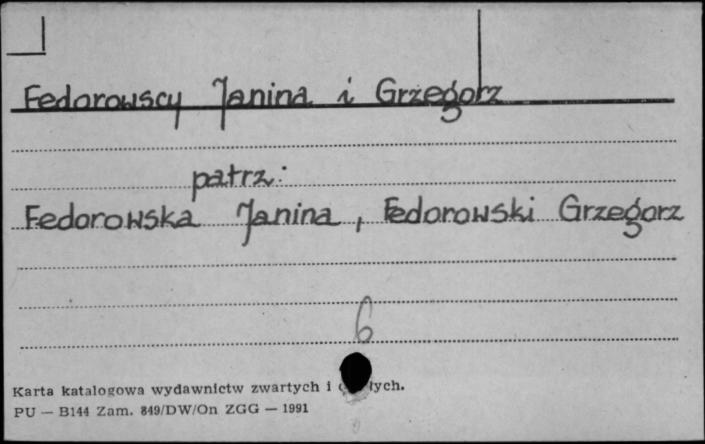 Fedorowscy Janina i Grzegorz
patrz:
Fedorowska Janina, Fedorowski Grzegorz
6
Karta katalogowa wydawnictw zwartych i
PU — B144 Zam. 849/DW/On ZGG — 1991